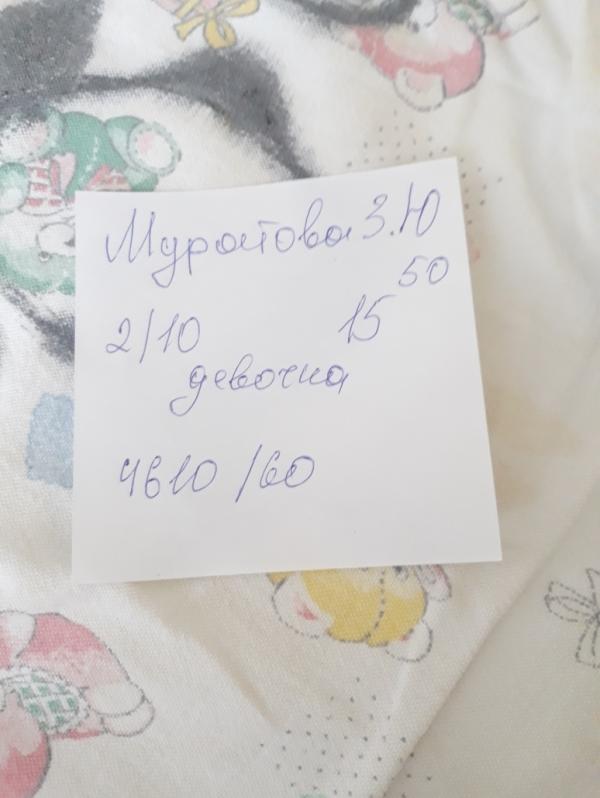 Муратова З.Ю
2/10 15 50
девочка
4610/60